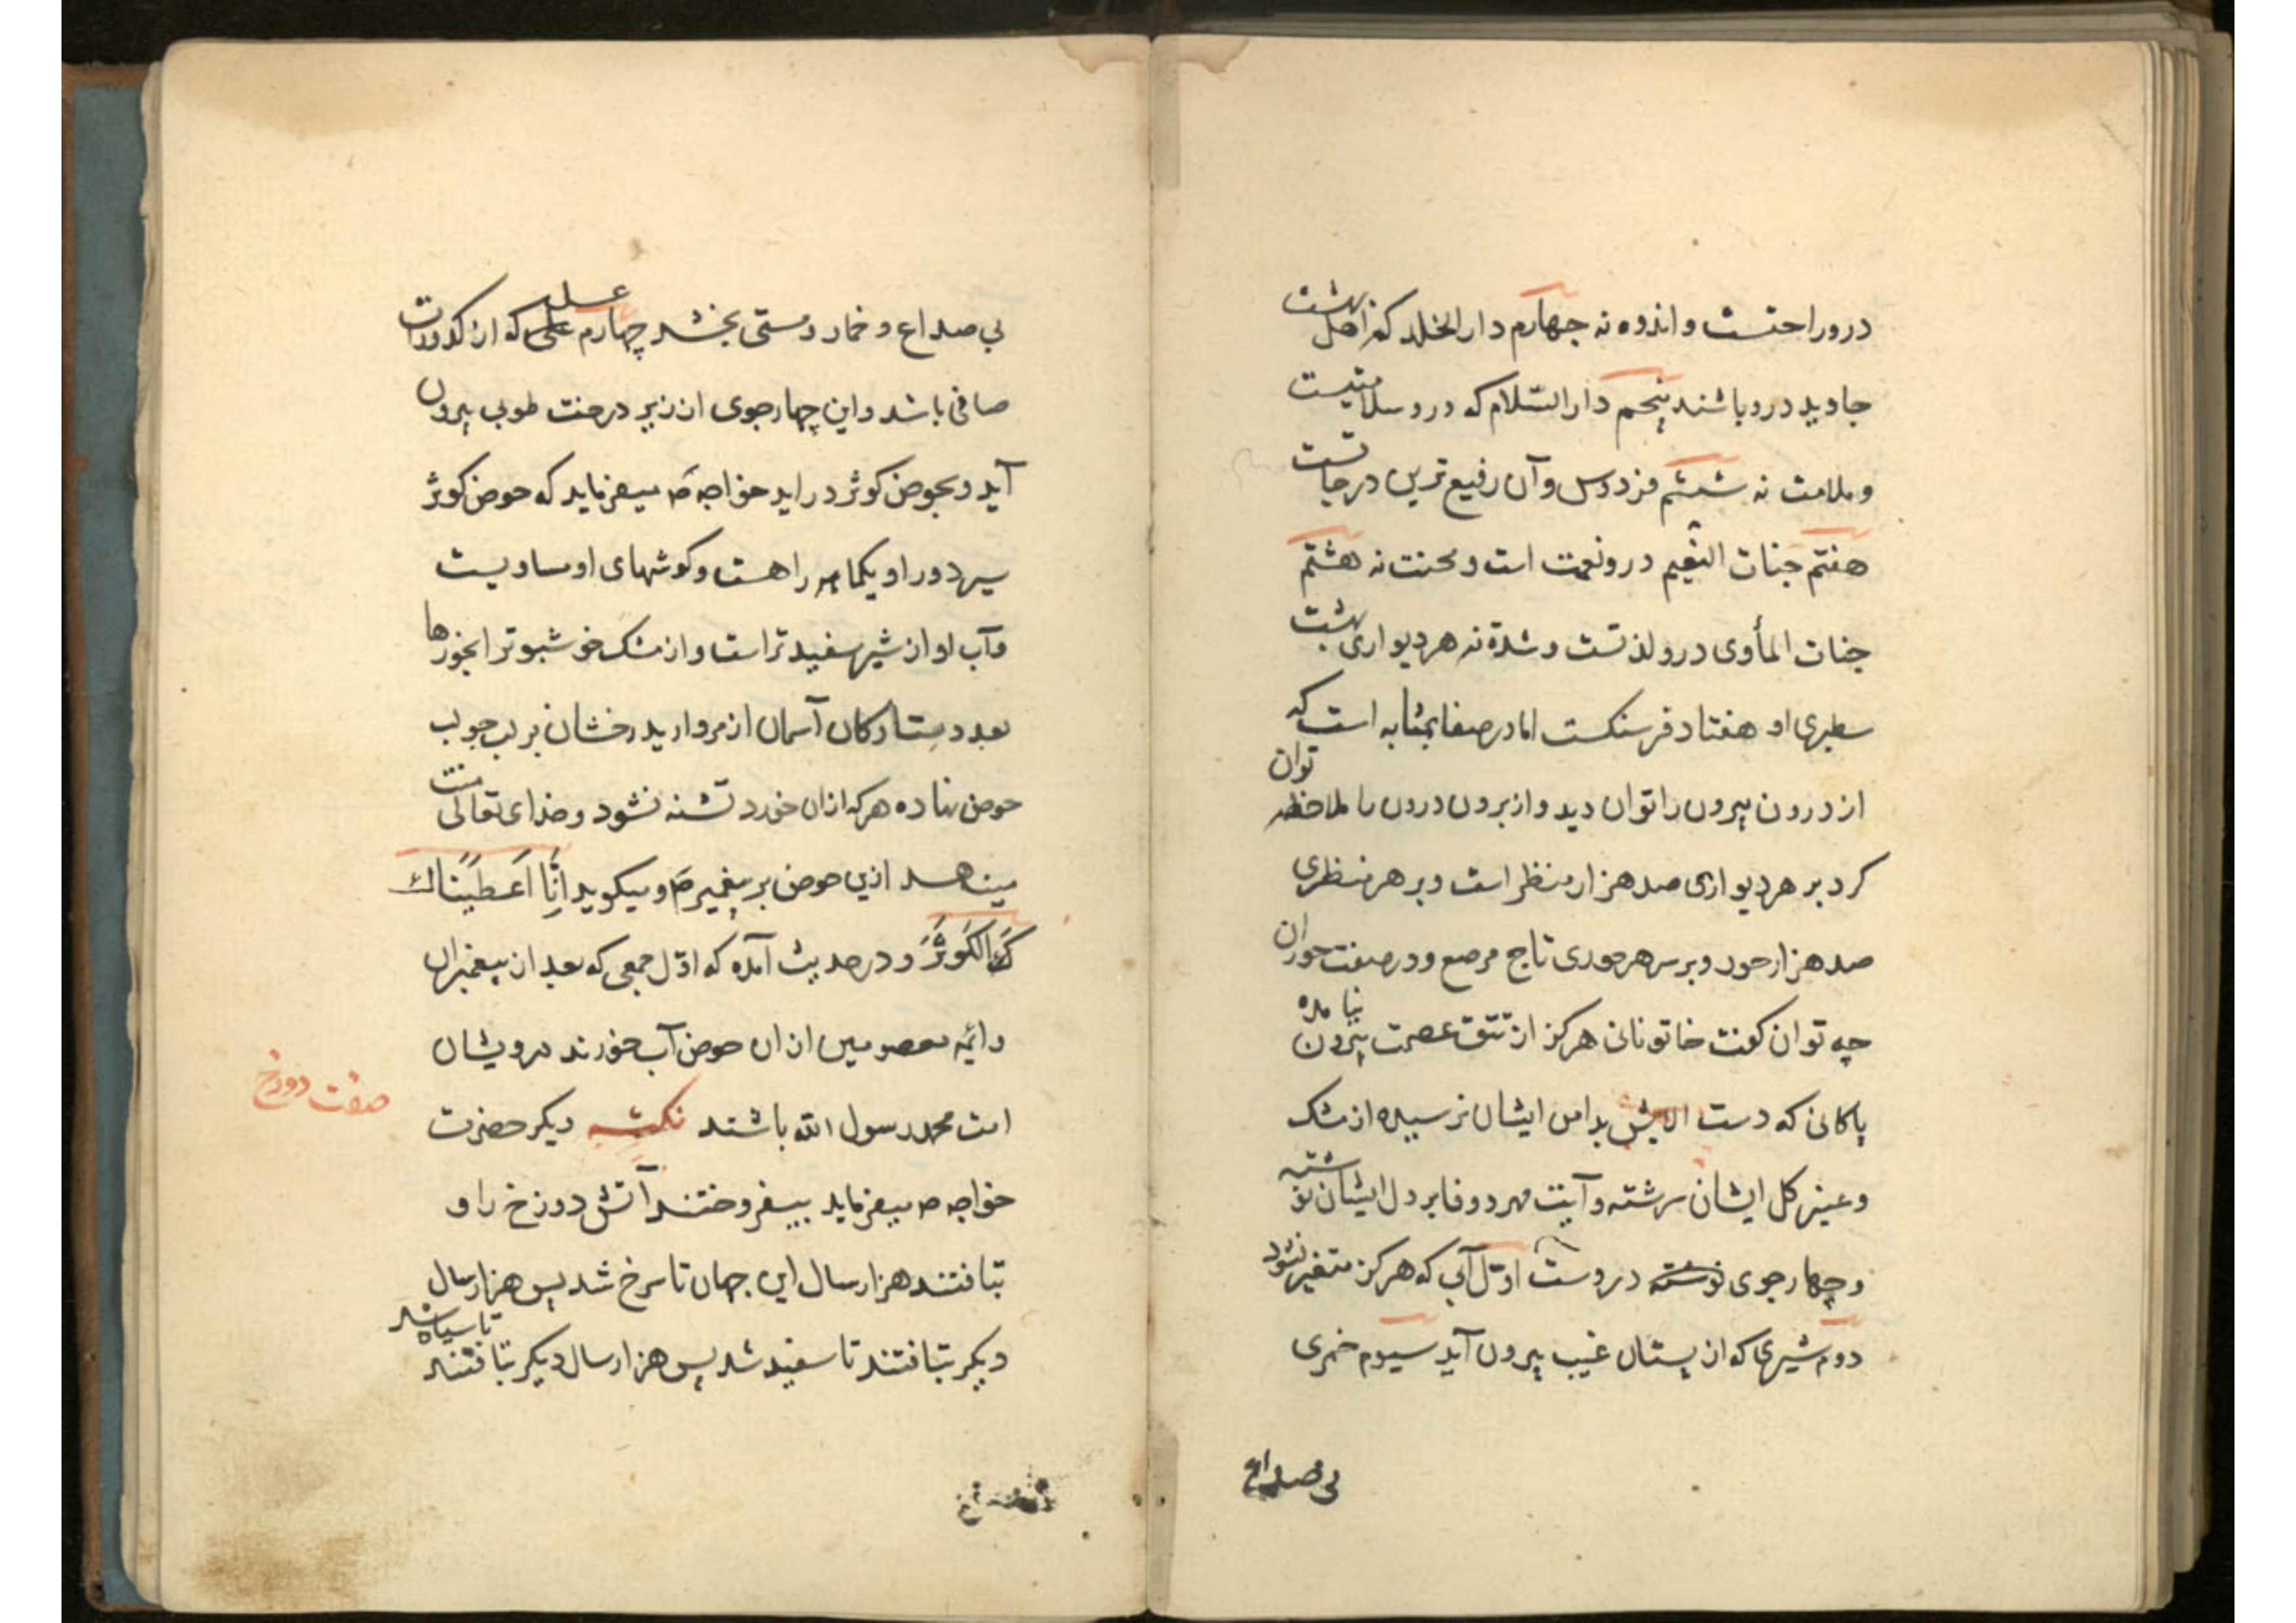 درو راحتست و اندوه نه چهارم دار الخلد که اهل بهشت
جاوید درو باشند پنجم دار السّلام که درو سلامتیست
و ملامت نه ششم فردوس و آن رفیع ترین درجاتست
هفتم جنات النعیم درو نعمت است و محنت نه هشتم
جنات المأوی درو لذتست و شدة نه هر دیواری بهشت
سطبری او هفتاد فرسنکست اما در صفا بمثابه است که
از درون بیرون را توان دید و از برون درون را ملاحظه توان
کرد بر هر دیواری صد هزار منظر است و بر هر منظری
صد هزار حور و بر سر هر حوری تاج مرصع و در صفت حوران
چه توان کفت خاتونانی هرکز از تتق عصمت بیرون نیامده
پاکانی که دست الایش بدامن ایشان نرسیده از مشک
و عنبر کل ایشان سرشته و آیت مهر و وفا بر دل ایشان نوشته
و چهار جوی نوشته دروست اوّل آبی که هرکز متغیر نشود
دوم شیری که از پستان غیب بیرون آید سیوم خمری
بی صداع
بی صداع و خمار و مستی بخشد چهارم عسلی که از کدورات
صافی باشد و این چهار جوی از زیر درخت طوبی بیرون
آید و بحوض کوثر در اید خواجه صَ میفرماید که حوض کوثر
سیر دور او یکماهه راهست و کوشهای او مساویست
و آب او از شیر سفید تر است و از مشک خوشبوتر ابخورها
بعدد ستارکان آسمان از مروارید رخشان بر لب جوب
حوض نهاده هر که ازان خورد تشنه نشود و خدای تعالی منت
مینهد ازین حوض بر پیغمبر صَ و میکوید اِنَّا اَعْطَیْنَاكَ
الْکَوْثَرَ و در حدیث آمده که اوّل جمعی که بعد از پیغمبران
و ائمه معصومین ازان حوض آب خورند درویشان
امت محمد رسول الله باشند نکته دیکر حضرت
صفت دوزخ
خواجه ص میفرماید بیفروختند آتش دوزخ را و
بتافتند هزار سال این جهان تا سرخ شد پس هزار سال
دیکر بتافتند تا سفید شد پس هزار سال دیکر بتافتند تا سیاه شد